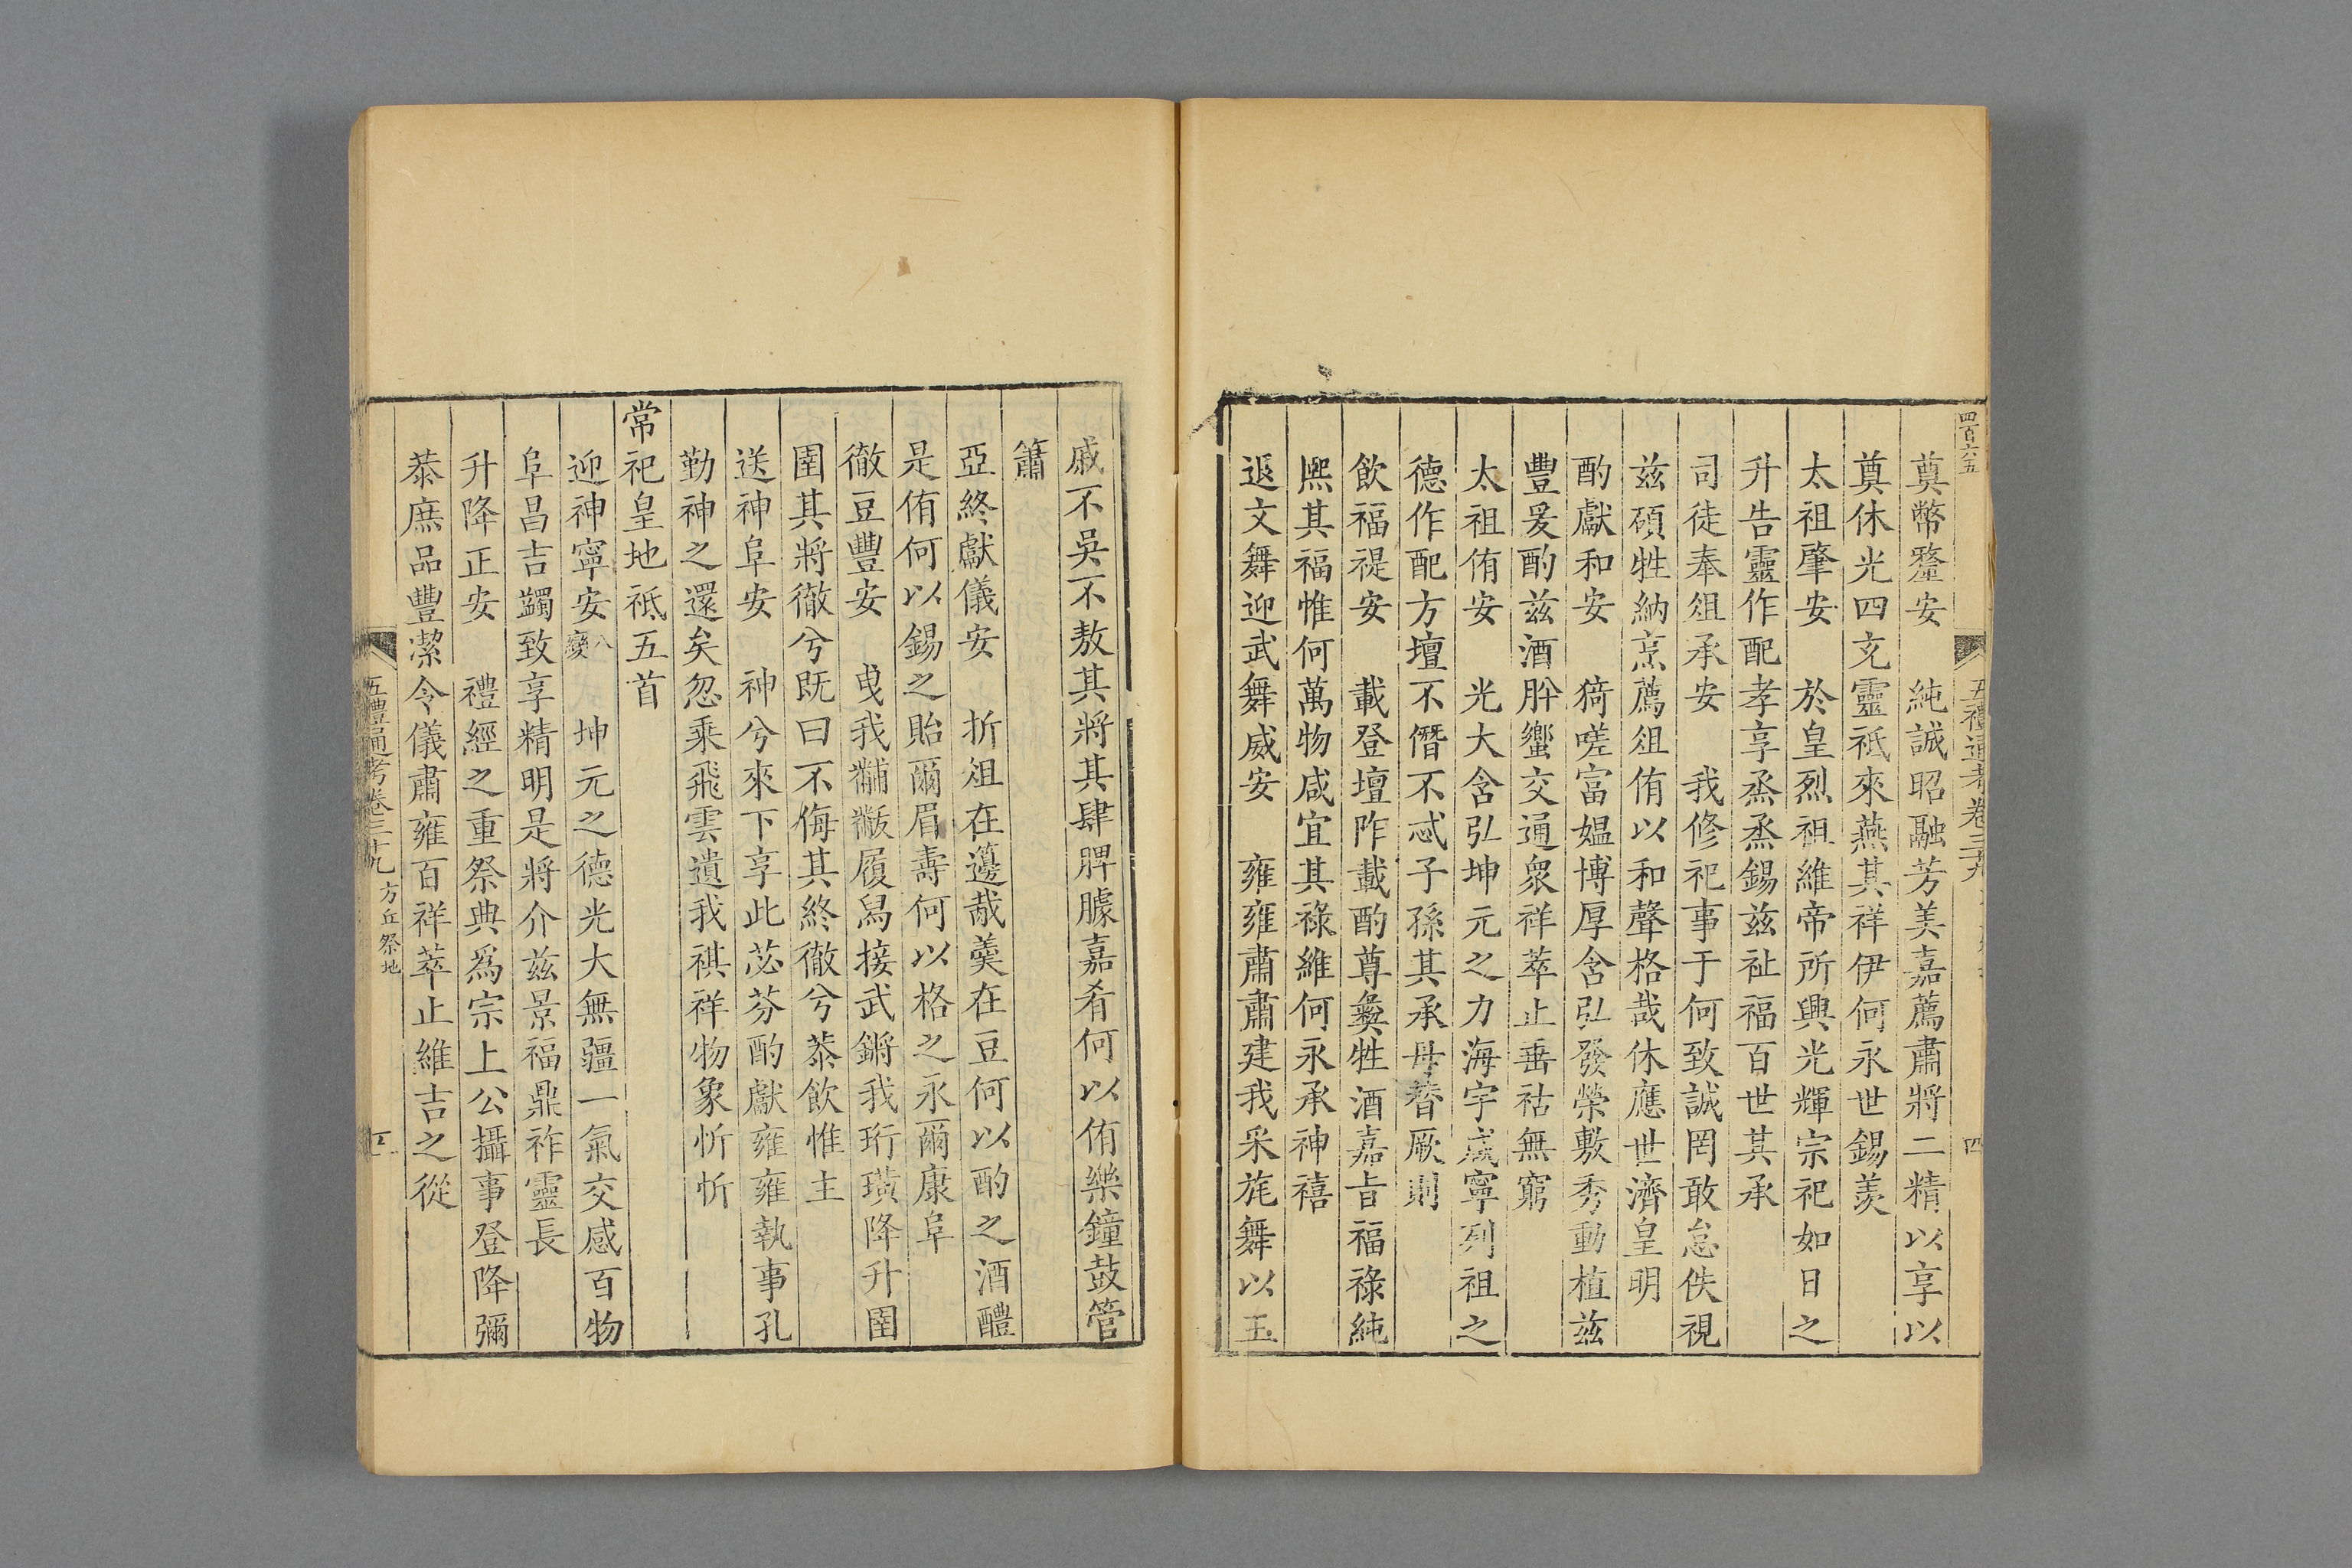 四百六五
五禮通考卷三十九
四
奠幣釐安　純誠昭融芳美嘉薦肅將二精以享以
奠休光四充靈祗來燕其祥伊何永世錫羨
太祖肇安　於皇烈祖維帝所興光輝宗祀如日之
升告靈作配孝享烝烝錫兹祉福百世其承
司徒奉俎承安　我修祀事于何致誠罔敢怠佚視
兹碩牲納烹薦俎侑以和聲格哉休應世濟皇明
酌獻和安　猗嗟富媼博厚含弘發榮敷秀動植兹
豐爰酌兹酒肸蠁交通衆祥萃止垂祜無窮
太祖侑安　光大含弘坤元之力海宇咸寧列祖之
德作配方壇不僭不忒子孫其承毋替厥則
飲福禔安　載登壇阼載酌尊彝牲酒嘉旨福祿純
熙其福惟何萬物咸宜其祿維何永承神禧
退文舞迎武舞威安　雍雍肅肅建我采旄舞以玉
戚不吳不敖其將其肆脾臄嘉肴何以侑樂鐘鼓管
簫
亞終獻儀安　折俎在籩胾羹在豆何以酌之酒醴
是侑何以錫之貽爾眉壽何以格之永爾康阜
徹豆豐安　曳我黼黻履舄接武鏘我珩璜降升圉
圉其將徹兮既曰不侮其終徹兮恭飲惟主
送神阜安　神兮來下享此苾芬酌獻雍雍執事孔
勤神之還矣忽乘飛雲遺我祺祥物象忻忻
常祀皇地祗五首
迎神寧安八變　坤元之德光大無疆一氣交感百物
阜昌吉蠲致享精明是將介兹景福鼎祚靈長
升降正安　禮經之重祭典爲宗上公攝事登降彌
恭庶品豐潔令儀肅雍百祥萃止維吉之從
五禮通考卷三十九　方丘祭地